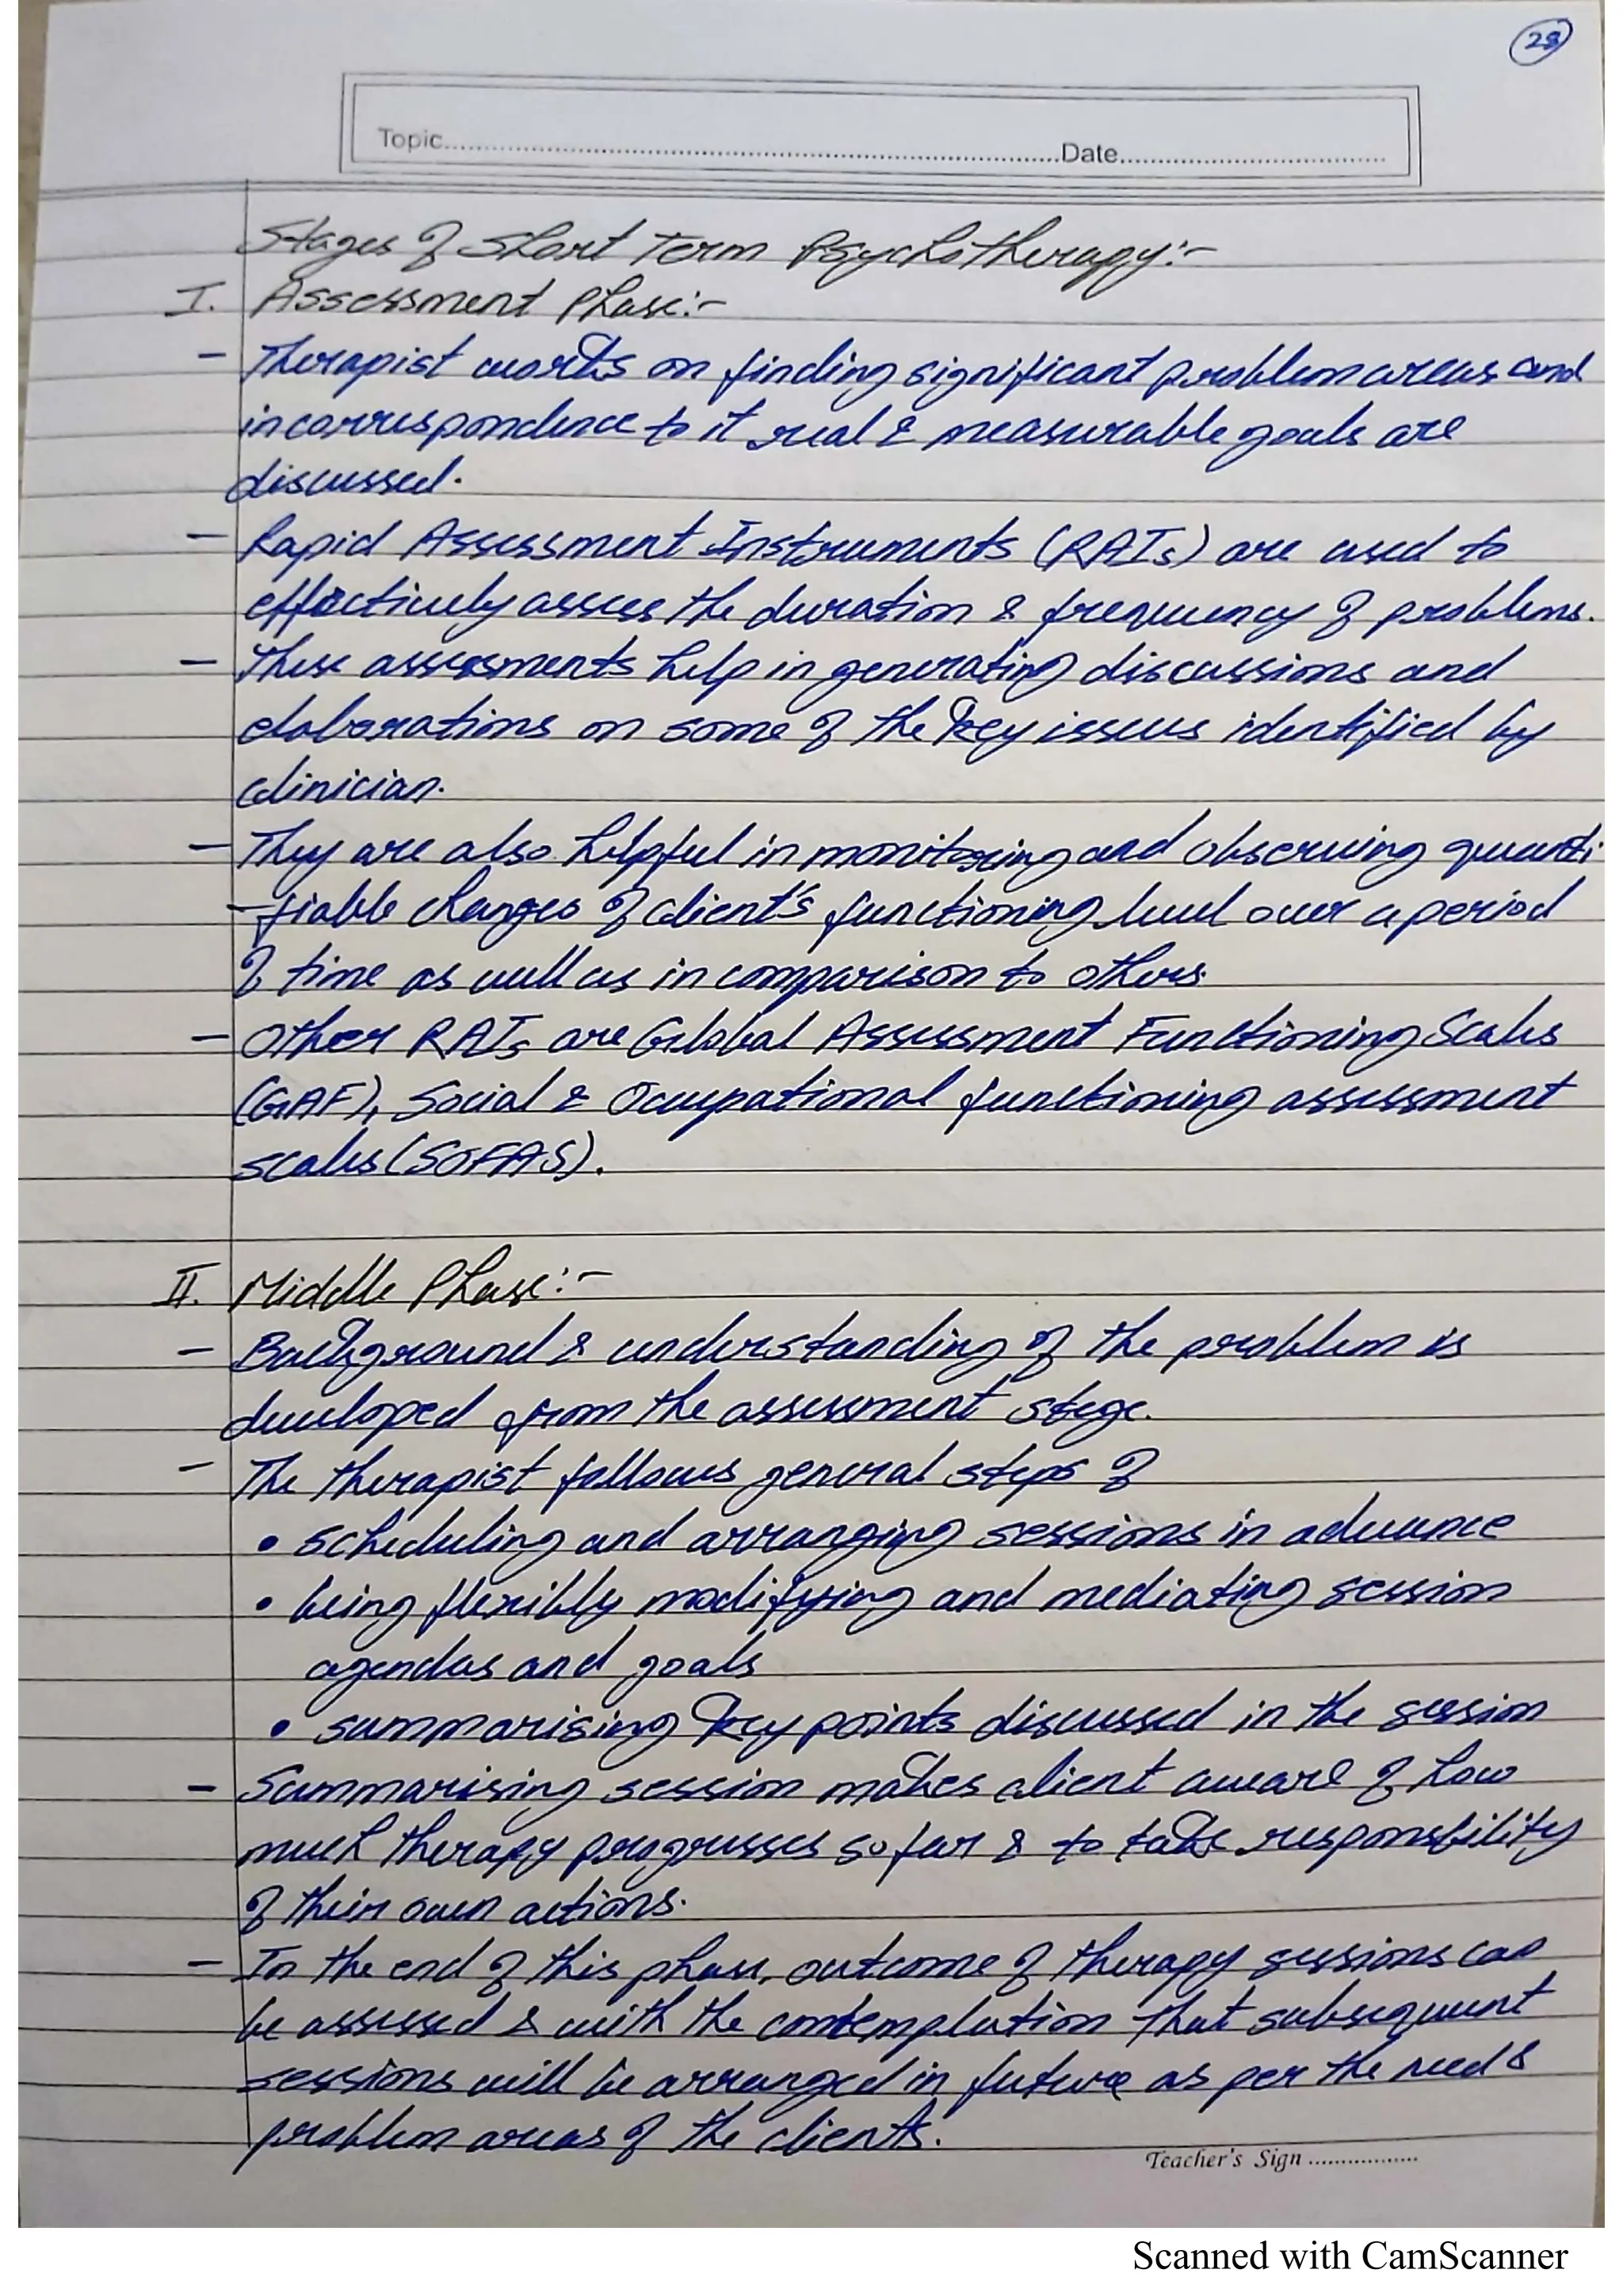 28
Topic.......... Date..........
Stages of Short Term Psychotherapy:-
I. Assessment Phase:-
- Therapist works on finding significant problem areas and
in correspondence to it real & measurable goals are
discussed.
- Rapid Assessment Instruments (RAIs) are used to
effectively assess the duration & frequency of problems.
- These assessments help in generating discussions and
elaborations on some of the key issues identified by
clinician.
- They are also helpful in monitoring and observing quanti
-fiable changes of client's functioning level over a period
of time as well as in comparison to others.
- Other RAIs are Global Assessment Functioning Scales
(GAF), Social & Occupational functioning assessment
scales (SOFAS).
II. Middle Phase:-
- Background & understanding of the problem is
developed from the assessment stage.
- The therapist follows general steps of
• scheduling and arranging sessions in advance
• being flexibly modifying and mediating session
agendas and goals
• summarising key points discussed in the session
- Summarising session makes client aware of how
much therapy progresses so far & to take responsibility
of their own actions.
- In the end of this phase, outcome of therapy sessions can
be assessed & with the contemplation that subsequent
sessions will be arranged in future as per the need &
problem areas of the clients.
Teacher's Sign ..................
Scanned with CamScanner